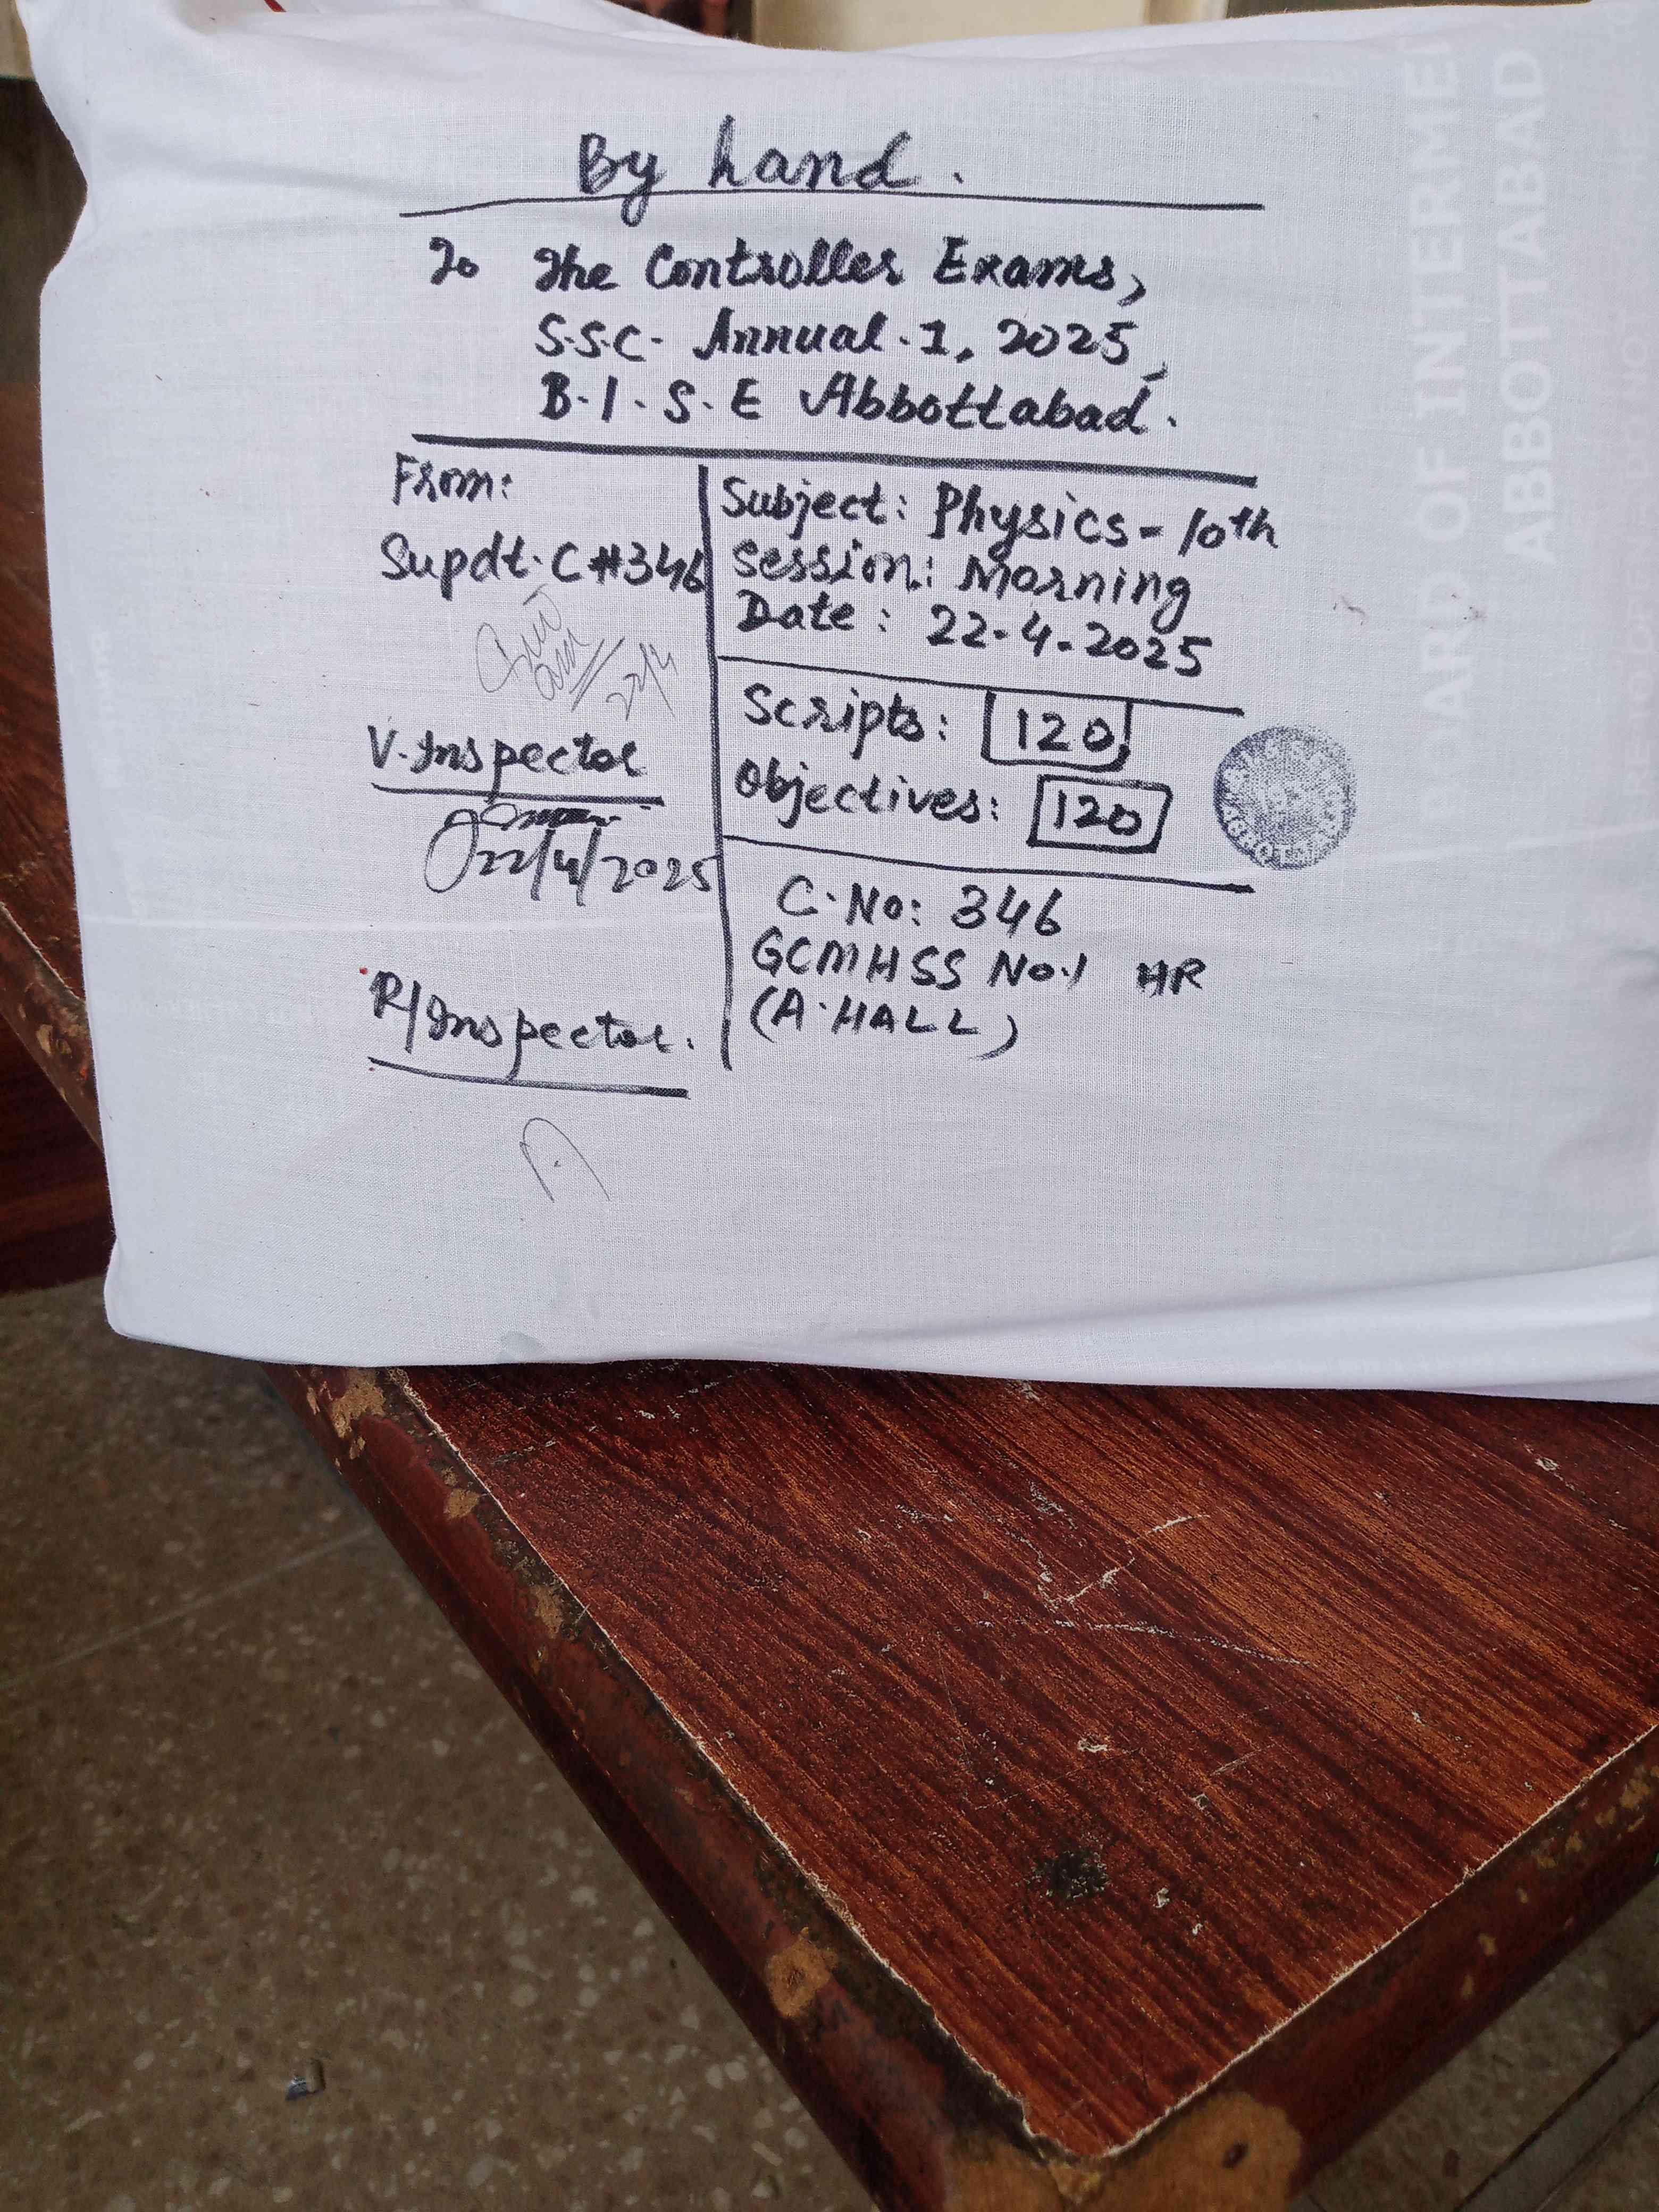 By hand.
To The Controller Exams,
S.S.C. Annual.1, 2025,
B.I.S.E Abbottabad.
From:
Supdt. C #346
22/4
V. Inspector
22/4/2025
R/Inspector.
Subject: Physics - 10th
Session: Morning
Date: 22.4.2025
Scripts: 120
Objectives: 120
C.No: 346
GCMHSS No.1 HR
(A.HALL)
ARD OF INTERME
ABBOTTABAD